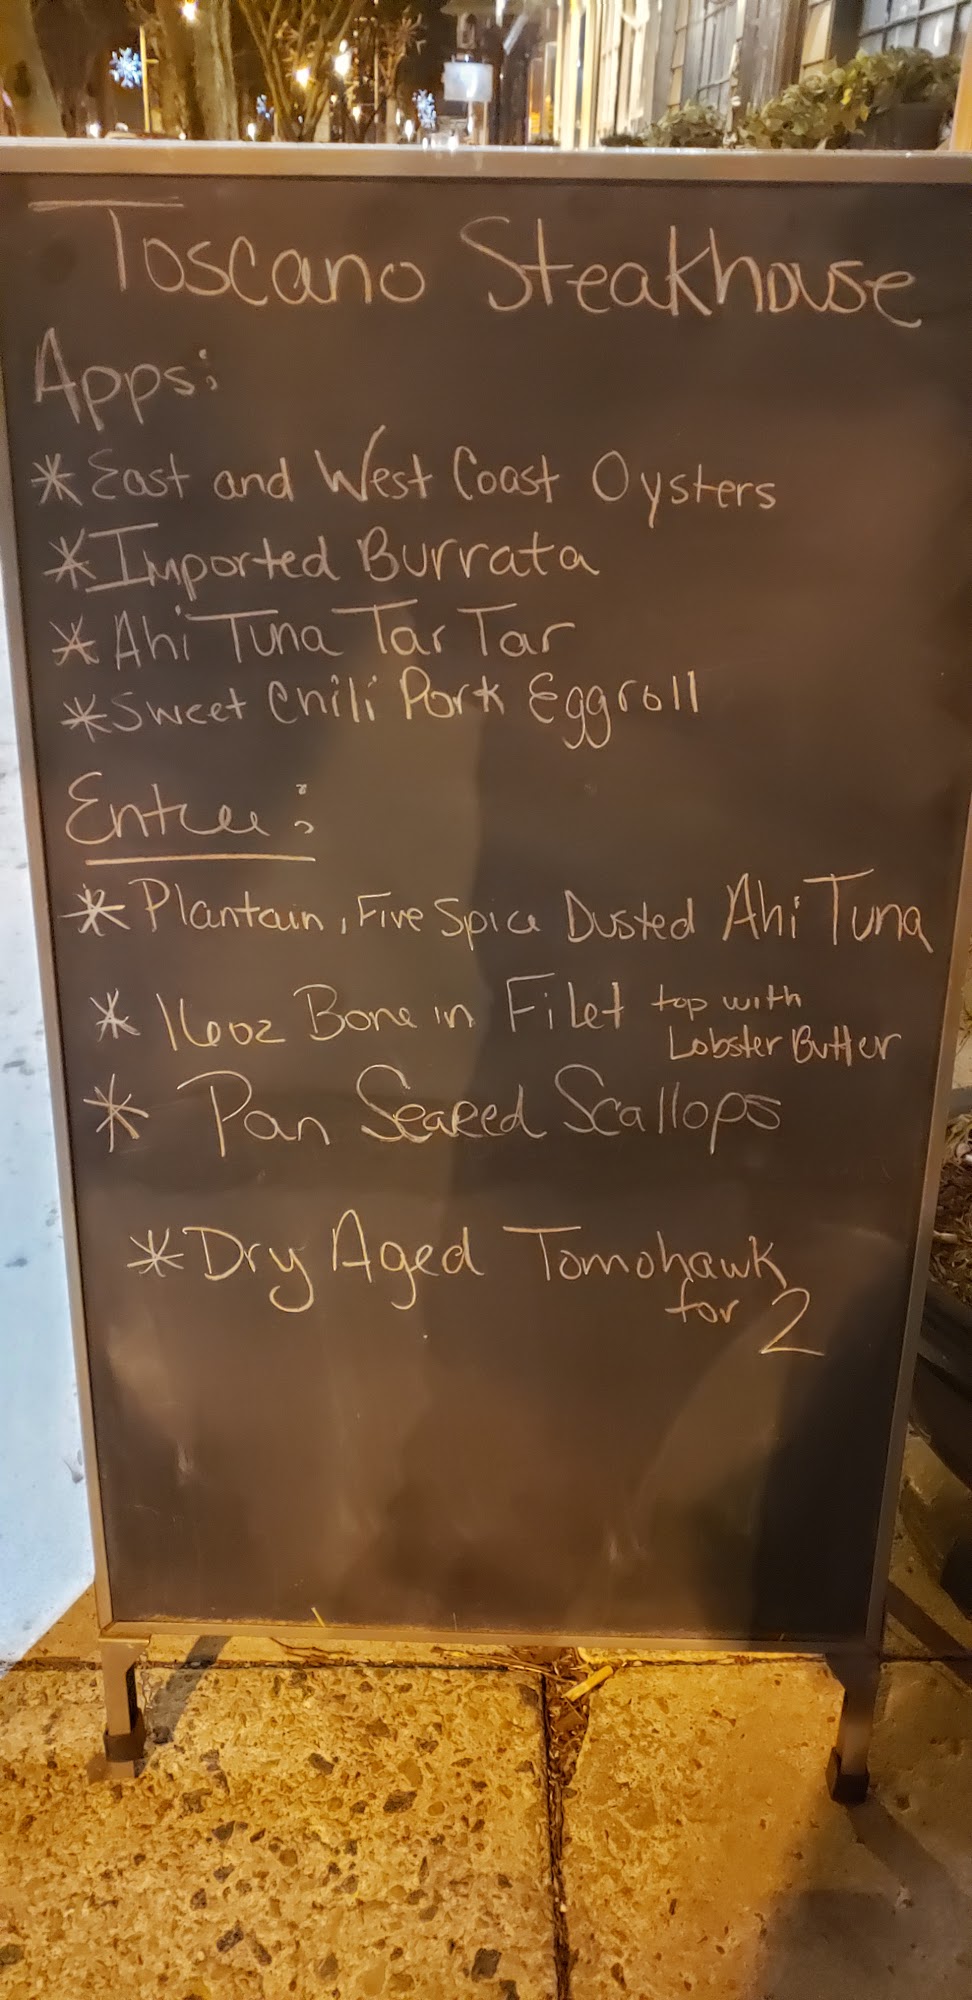 Toscano Steakhouse
Apps:
* East and West Coast Oysters
* Imported Burrata
* Ahi Tuna Tar Tar
* Sweet Chili Pork Eggroll
Entree:
* Plantain, Five Spice Dusted Ahi Tuna
* 16oz Bone in Filet top with
Lobster Butter
* Pan Seared Scallops
* Dry Aged Tomohawk
for 2